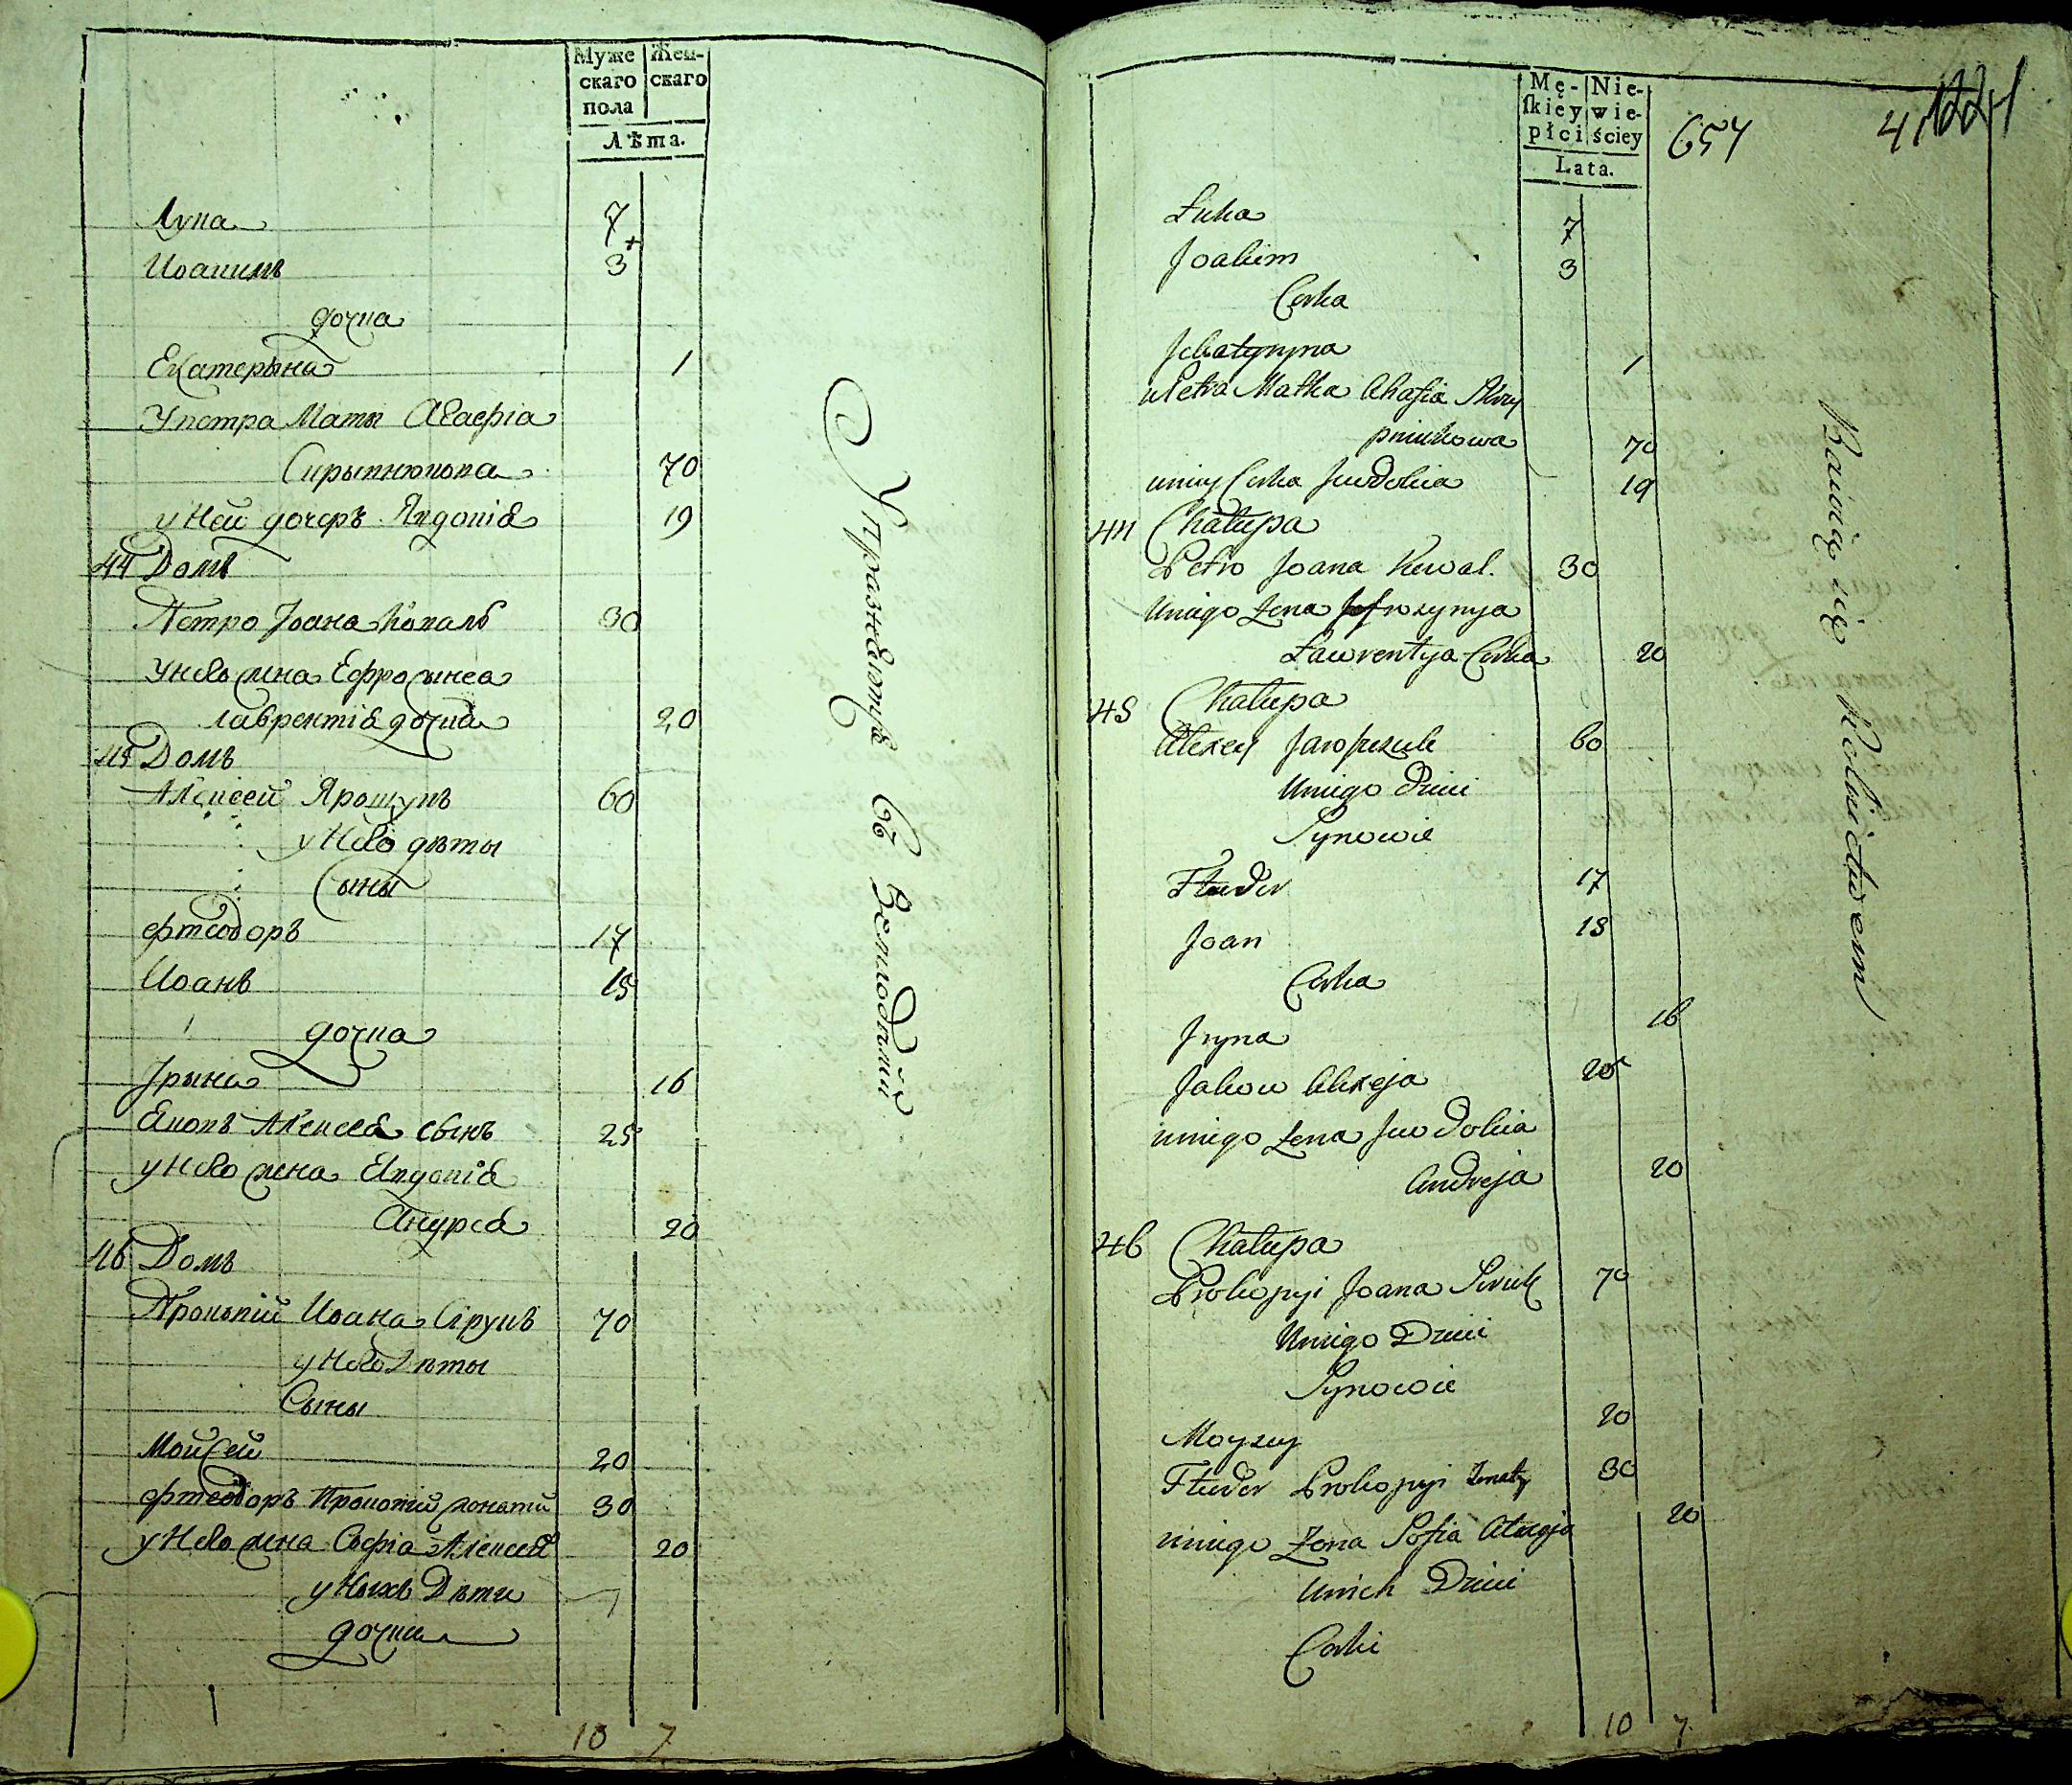 Муже Жен-
скаго скаго
пола
Лѣта.
Лука 7
Иоакимъ 3
дочка
Екатерына 1
У петра Маты Агафіа
Скрыпнюкова 70
у Ней дочеръ Явдокіа 19
44 Домъ
Петро Іоана Коваль 30
У него жена Ефросынеа
Лаврентіа дочка 20
45 Домъ
Алеѯей Ярошукъ 60
у Него дѣты
Сыны
Фтеодоръ 17
Иоанъ 15
дочка
Ірына 16
Яковъ Алеѯеа сынъ 25
у Него жена Явдокіа
Андреа 20
46 Домъ
Прокопій Иоана Сірукъ 70
у Него Дѣты
Сыны
Мойсей 20
Фтеодоръ Прокопій жонатий 30
у Него жена Софіа Алеѯеа 20
у Ныхъ Дѣти
дочки
10 7
Упражняются въ Земледѣлій
Mę- Nie-
ſkiey wie-
płci ściey
Lata.
654
Łuka 7
Joakim 3
Corka
Jekatyryna 1
u Petra Matka Ahafia Skry
pniukowa 70
u niey Corka Juwdokia 19
44 Chałupa
Petro Joana Kowal. 30
U niego Żona Jefrozynya
Ławrentya Corka 20
45 Chałupa
Alexey Jaroſzuk 60
U niego Dzieci
Synowie
Fteodor 17
Joan 15
Corka
Jryna 16
Jakow Alexeja 25
u niego żona Juwdokia
Andreja 20
46 Chałupa
Prokopyi Joana Siruk 70
U niego Dzieci
Synowie
Moyzey 20
Fteodor Prokopyi Żonaty 30
u niego Żona Sofia Alexeja 20
U nich Dzieci
Corki
10 7
Bawią się Rolnictwem